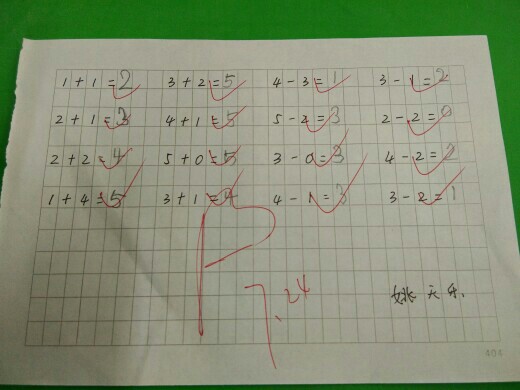 1 + 1 = 2 3 + 2 = 5 4 - 3 = 1 3 - 1 = 2
2 + 1 = 3 4 + 1 = 5 5 - 2 = 3 2 - 2 = 0
2 + 2 = 4 5 + 0 = 5 3 - 0 = 3 4 - 2 = 2
1 + 4 = 5 3 + 1 = 4 4 - 1 = 3 3 - 2 = 1
7.24
姚天乐
404